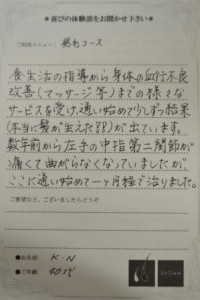 ＊喜びの体験談をお聞かせ下さい＊
ご利用メニュー： 発毛コース
食生活の指導から身体の血行不良
改善(マッサージ等)までの様々な
サービスを受け、通い始めて少しずつ結果
(本当に髪が生えた!!)が出ています。
数年前から左手の中指第二関節が
痛くて曲がらなくなっていましたが、
ここに通い始めて一ヶ月程で治りました。
ご要望など、ございましたらどうぞ
●お名前 K・N
●ご年齢 40才